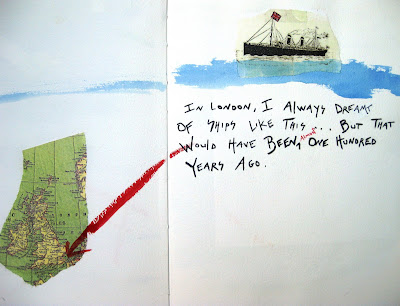 IN LONDON, I ALWAYS DREAMS
OF SHIPS LIKE THIS... BUT THAT
WOULD HAVE BEEN ALMOST ONE HUNDRED
YEARS AGO.